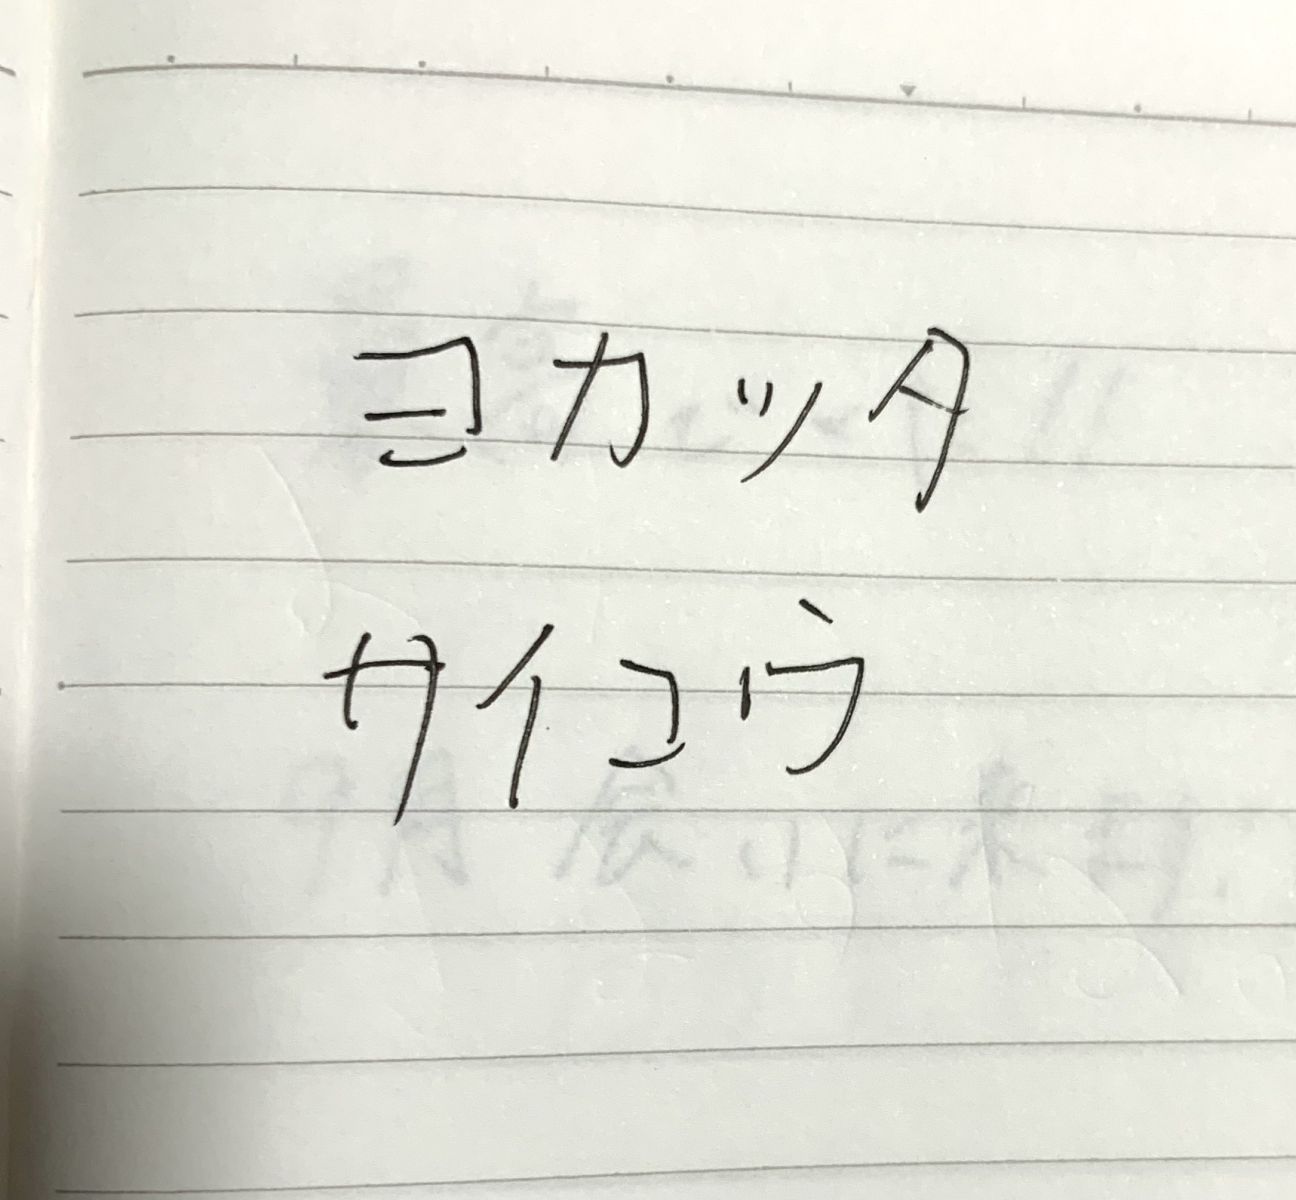 ヨカッタ
サイコウ